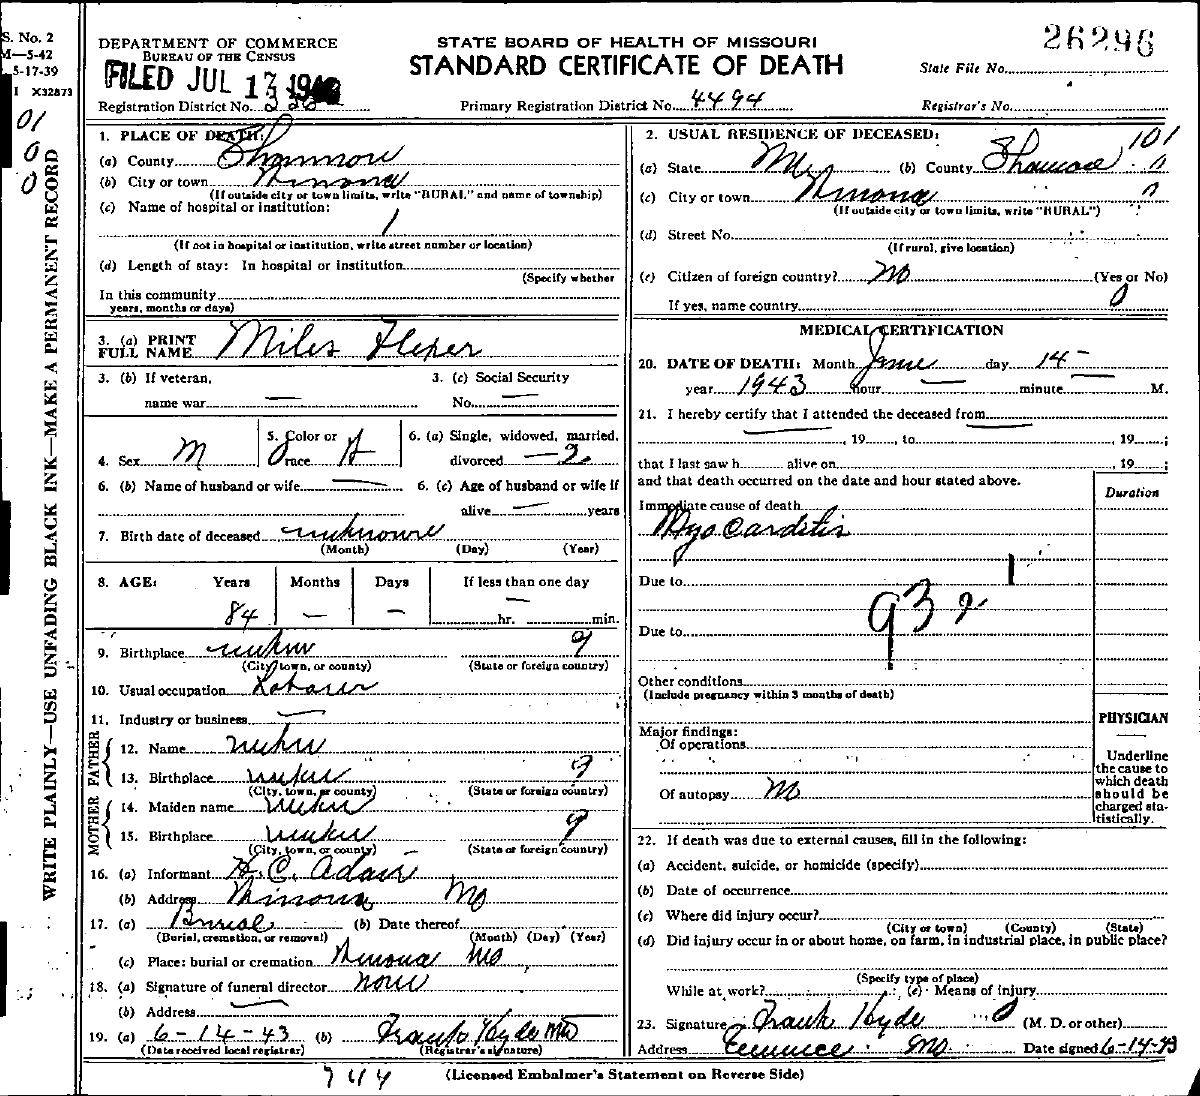 S. No. 2
M—5-42
5-17-39
I X32873
01
0
0
WRITE PLAINLY—USE UNFADING BLACK INK—MAKE A PERMANENT RECORD
DEPARTMENT OF COMMERCE
BUREAU OF THE CENSUS
FILED JUL 17
Registration District No.
STATE BOARD OF HEALTH OF MISSOURI
STANDARD CERTIFICATE OF DEATH
Primary Registration District No. 4494
26296
State File No.
Registrar's No.
1. PLACE OF DEATH:
(a) County Shannon
(b) City or town Winona
(If outside city or town limits, write "RURAL" and name of township)
(c) Name of hospital or institution:
(If not in hospital or institution, write street number or location)
(d) Length of stay: In hospital or institution
(Specify whether
In this community
years, months or days)
3. (a) PRINT FULL NAME Miles
3. (b) If veteran, name war —
3. (c) Social Security No. —
4. Sex M
5. Color or race
6. (a) Single, widowed, married, divorced — 2
6. (b) Name of husband or wife —
6. (c) Age of husband or wife if alive — years
7. Birth date of deceased unknown
(Month) (Day) (Year)
8. AGE: Years Months Days If less than one day
84 — — — hr. min.
9. Birthplace unkn 9
(City, town, or county) (State or foreign country)
10. Usual occupation Laborer
11. Industry or business —
FATHER
12. Name unkn
13. Birthplace unkn 9
(City, town, or county) (State or foreign country)
MOTHER
14. Maiden name unkn
15. Birthplace unkn 9
(City, town, or county) (State or foreign country)
16. (a) Informant H. C. Adair
(b) Address Winona Mo
17. (a) Burial (b) Date thereof
(Burial, cremation, or removal) (Month) (Day) (Year)
(c) Place: burial or cremation Winona Mo
18. (a) Signature of funeral director none
(b) Address —
19. (a) 6-14-43 (b) Frank Hyde MD
(Date received local registrar) (Registrar's signature)
744
2. USUAL RESIDENCE OF DECEASED:
101
(a) State Mo (b) County Shannon
(c) City or town Winona
(If outside city or town limits, write "RURAL")
(d) Street No.
(If rural, give location)
(e) Citizen of foreign country? No (Yes or No)
If yes, name country 0
MEDICAL CERTIFICATION
20. DATE OF DEATH: Month June day 14
year 1943 hour — minute — M.
21. I hereby certify that I attended the deceased from
, 19 to , 19 ;
that I last saw h alive on , 19 ;
and that death occurred on the date and hour stated above.
Duration
Immediate cause of death
Myocarditis
Due to
93
Due to
Other conditions
(Include pregnancy within 3 months of death)
Major findings:
Of operations
Of autopsy No
PHYSICIAN
Underline
the cause to
which death
should be
charged sta-
tistically.
22. If death was due to external causes, fill in the following:
(a) Accident, suicide, or homicide (specify)
(b) Date of occurrence
(c) Where did injury occur?
(City or town) (County) (State)
(d) Did injury occur in or about home, on farm, in industrial place, in public place?
(Specify type of place)
While at work? (e) Means of injury
23. Signature Frank Hyde (M. D. or other)
Address Eminence Mo Date signed 6-14-43
(Licensed Embalmer's Statement on Reverse Side)